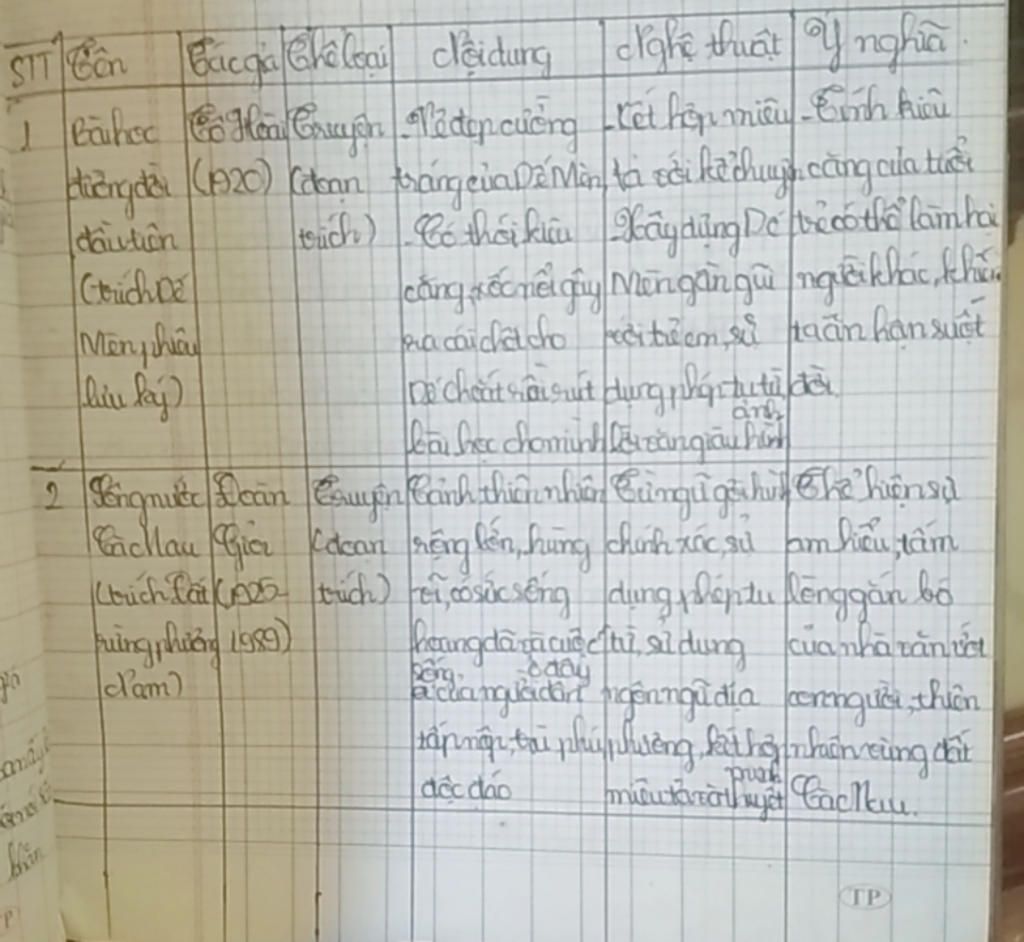 STT Tên Tác giả Thể loại Nội dung Nghệ thuật Ý nghĩa.
1 Bài học Tô Hoài Truyện - Vẻ đẹp cường - Kết hợp miêu - Tính kiêu
đường đời (1920) (đoạn tráng của Dế Mèn, tả với kể chuyện căng của tuổi
đầu tiên trích) - Có thói kiêu - Xây dựng Dế trẻ có thể làm hại
(trích Dế căng, xốc nổi gây Mèn gần gũi người khác, khiến
Mèn phiêu ra cái chết cho với trẻ em, sử ta ân hận suốt
lưu ký) Dế Choắt rồi rút dụng phép tu từ đời.
ảnh
bài học cho mình lời văn giàu hình
2 Sông nước Đoàn Truyện Cảnh thiên nhiên Từ ngữ gợi hình Thể hiện sự
Cà Mau Giỏi (đoạn rộng lớn, hùng chính xác, sử am hiểu, tấm
(trích Đất (1925- trích) vĩ, có sức sống dụng phép tu lòng gắn bó
rừng phương 1989) hoang dã và cuộc từ, sử dụng của nhà văn với
sống, ở đây
Nam) của người dân ngôn ngữ địa con người, thiên
tấp nập, trù phú phương, kết hợp nhiên vùng đất
độc đáo miêu tả và thuyết Cà Mau.
TP